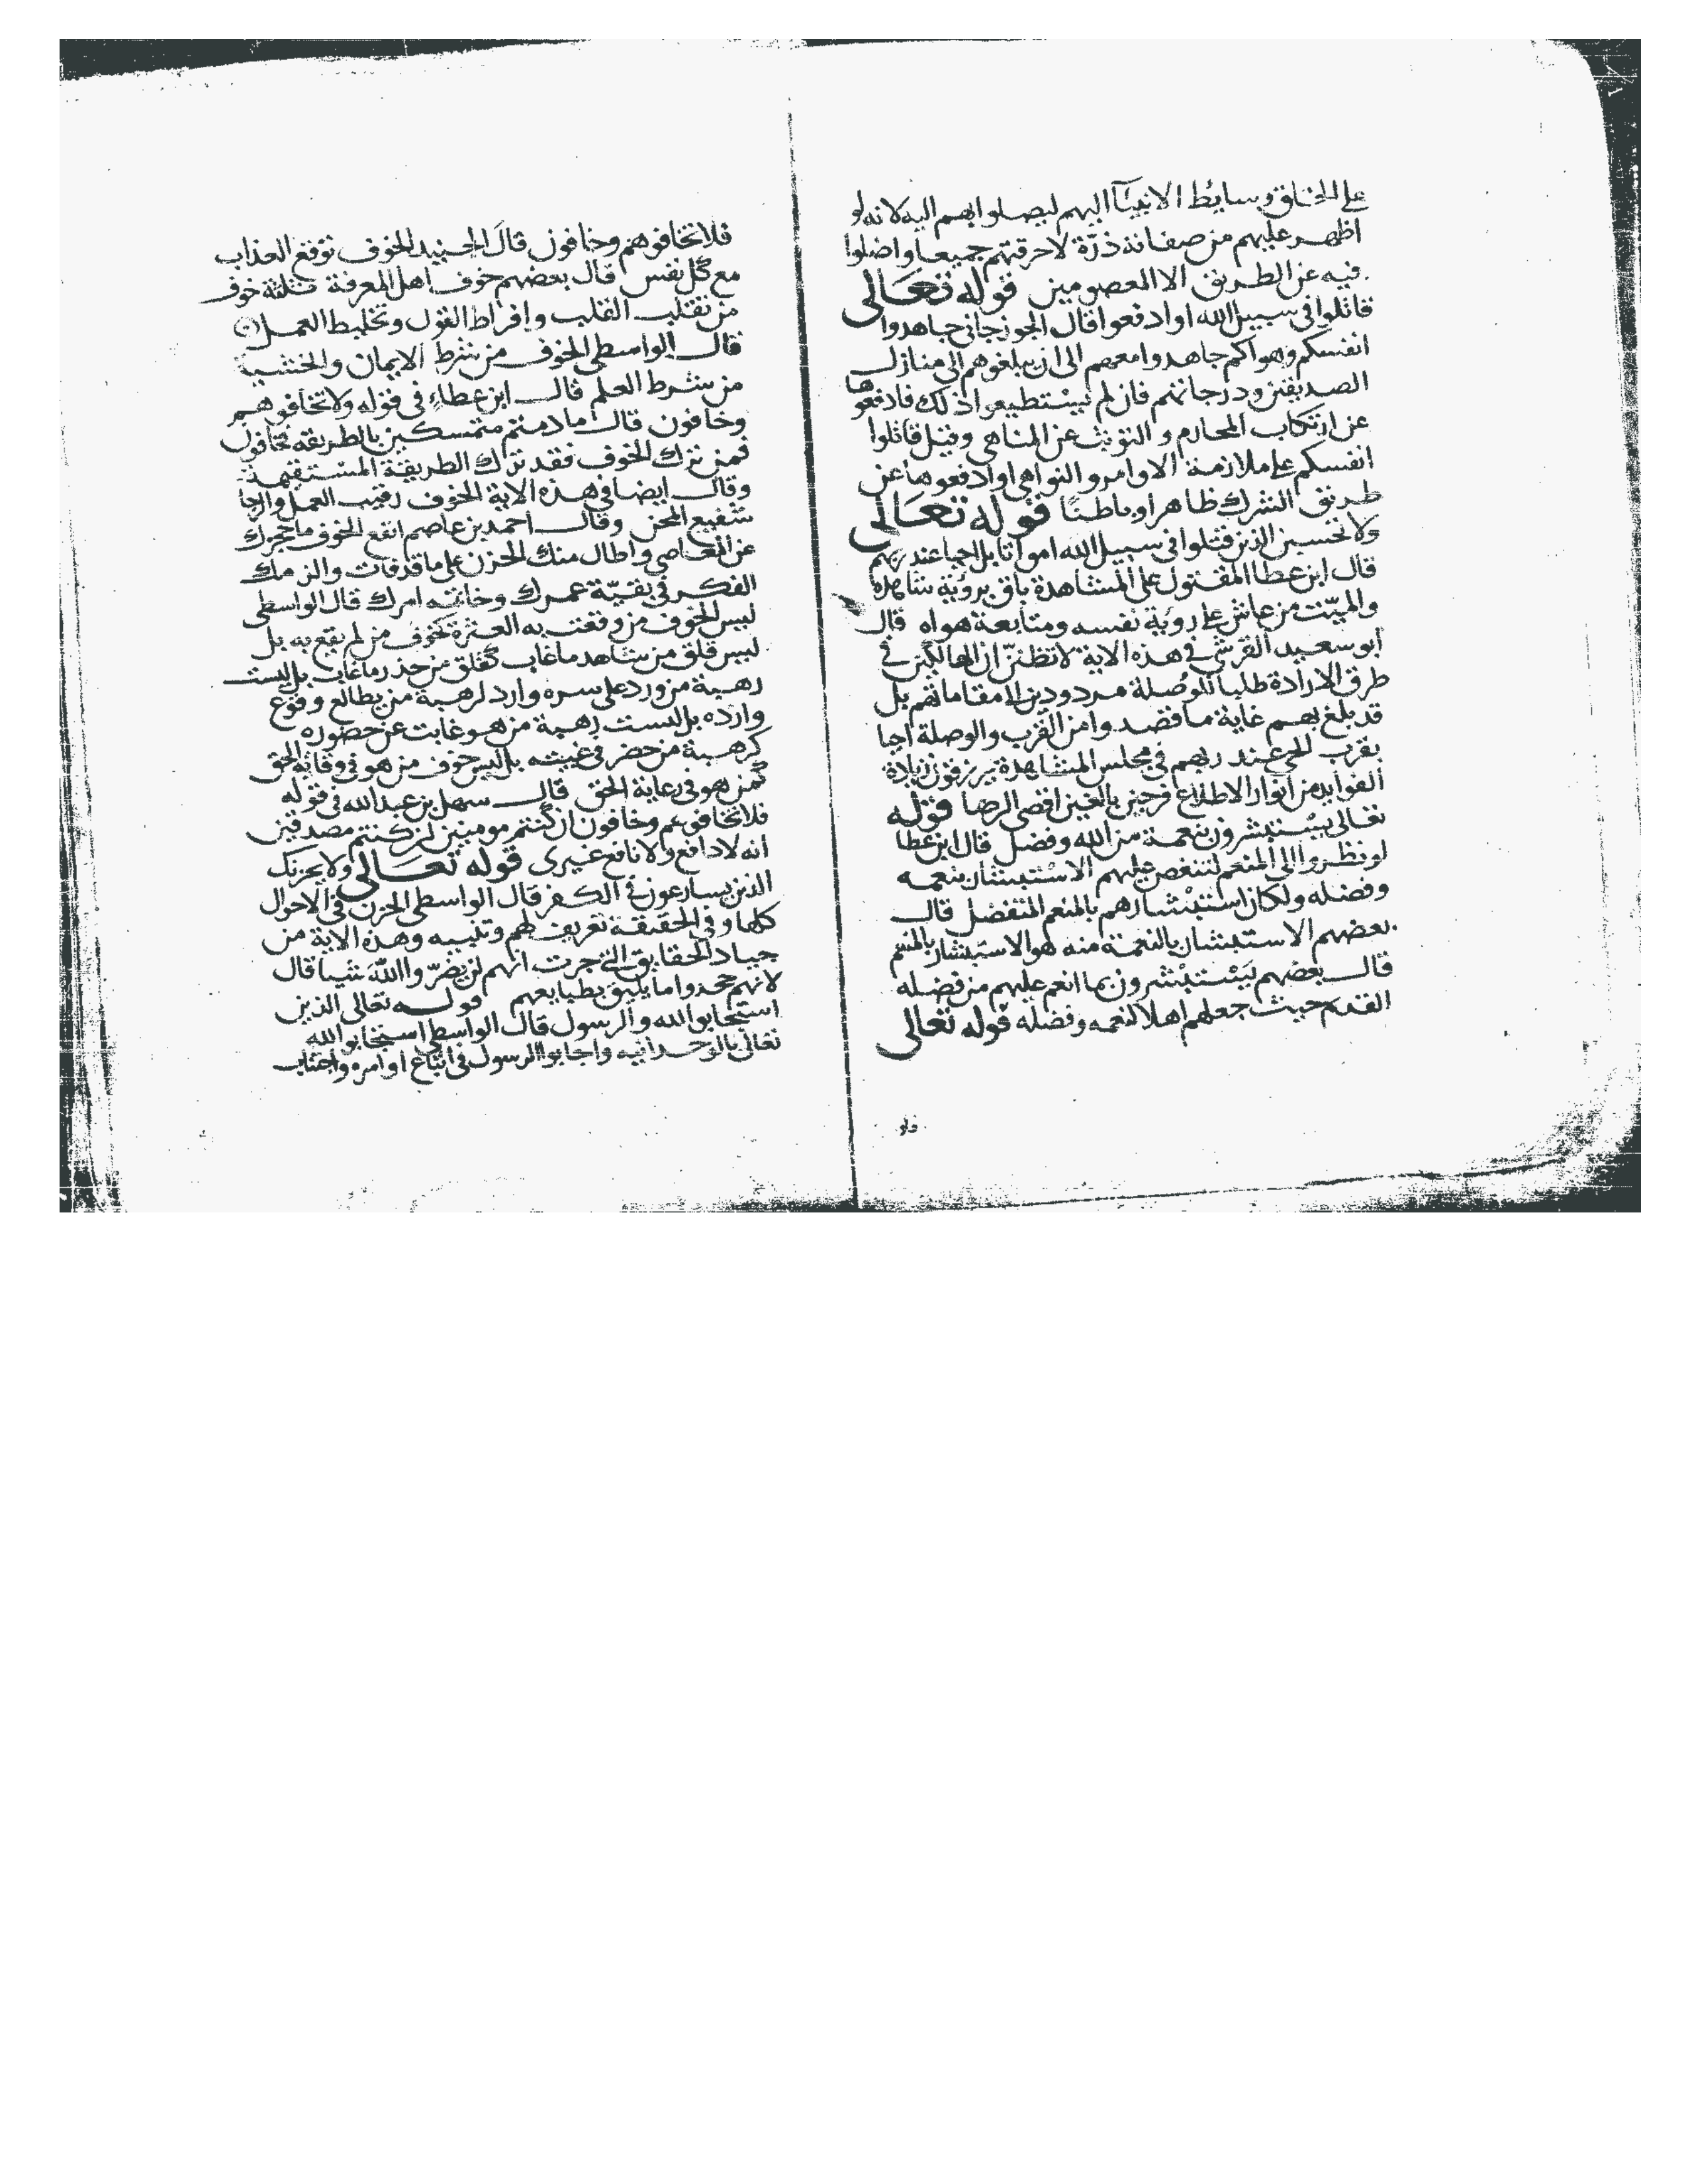 على الخلق وسايط الانبيآ اليهم ليصلوا بهم اليه لانه لو
اظهر عليهم من صفاته ذرّة لاحرقتهم جميعا واضلوا
فيه عن الطريق الا المعصومين قوله تعالى
قاتلوا في سبيل الله او ادفعوا قال الجوزجاني جاهدوا
انفسكم وهواكم جاهدوا معهم الى ان يبلغوهم الى منازل
الصديقين ودرجاتهم فان لم يستطيعوا ذلك فادفعوها
عن ارتكاب المحارم و التوثب عن المناهي وقيل قاتلوا
انفسكم على ملازمة الاوامر و النواهي او ادفعوها عن
طريق الشرك ظاهرا وباطنًا قوله تعالى
ولا تحسبن الذين قتلوا في سبيل الله امواتا بل احيا عند ربهم
قال ابن عطا المقتول على المشاهدة باق برؤية شاهده
والميّت من عاش على روية نفسه ومتابعة هواه قال
ابو سعيد القرشي في هذه الاية لا تظنّن ان الهالكين في
طرق الارادة طلبا للوصلة مردودين الى مقاماتهم بل
قد بلغ بهم غاية ما قصدوا من القرب والوصلة احيا
بقرب الحي عند ربهم في مجلس المشاهدة يرزقون زيادة
الفوايد من انوار الاطلاع فرحين بالغين اقصى الرضا قوله
تعالى يستبشرون بنعمة من الله وفضل قال ابن عطا
لو نظروا الى المنعم لتنغص عليهم الاستبشار بنعمه
وفضله ولكان استبشارهم بالمنعم المتفضل قال
بعضهم الاستبشار بالنعمة منه هو الاستبشار بالمنعم
قال بعضهم يستبشرون بما انعم عليهم من فضله
القديم حيث جعلهم اهلا لنعمه وفضله قوله تعالى
فلا
فلا تخافوهم وخافون قال الجنيد الخوف توقع العذاب
مع كل نفس قال بعضهم خوف اهل المعرفة ثلثة خوف
من تقلب القلب وافراط القول وتخليط العمل
قال الواسطي الخوف من شرط الايمان والخشية
من شرط العلم قال ابن عطاء في قوله ولا تخافوهم
وخافون قال ما دمتم متمسكين بالطريقة تخافون
فمن ترك الخوف فقد ترك الطريقة المستقيمة
وقال ايضا في هذه الاية الخوف رقيب العمل والرجا
شفيع المحن وقال احمد بن عاصم انفع الخوف ما حجزك
عن المعاصي واطال منك الحزن على ما قد فات والزمك
الفكر في بقيّة عمرك وخاتمه امرك قال الواسطي
ليس الخوف من وقعت به العثرة كخوف من لم يقع به بل
ليس قلق من شاهد ما غاب كقلق من حذر ما غاب بل ليست
رهبة من ورد على سره وارد لرهبة من يطالع وقوع
وارده بل ليست رهبة من هو غايب عن حضوره
كرهبة من حضر في غيبته بل ليس خوف من هو في وقاية الحق
كمن هو في رعاية الحق قال سهل بن عبد الله في قوله
فلا تخافوهم وخافون ان كنتم مومنين ان كنتم مصدقين
انه لا دافع ولا نافع غيري قوله تعالى ولا يحزنك
الذين يسارعون في الكفر قال الواسطي الحزن في الاحوال
كلها وفي الحقيقة تعريف لهم وتنبيه وهذه الاية من
جياد الحقايق التي جرت انهم لن يضرّوا الله شيا قال
لانهم جحدوا ما يليق بطبايعهم قوله تعالى الذين
استجابوا لله والرسول قال الواسطي استجابوا لله
تعالى بالوحدانيه واجابوا الرسول في اتباع اوامره واجتناب